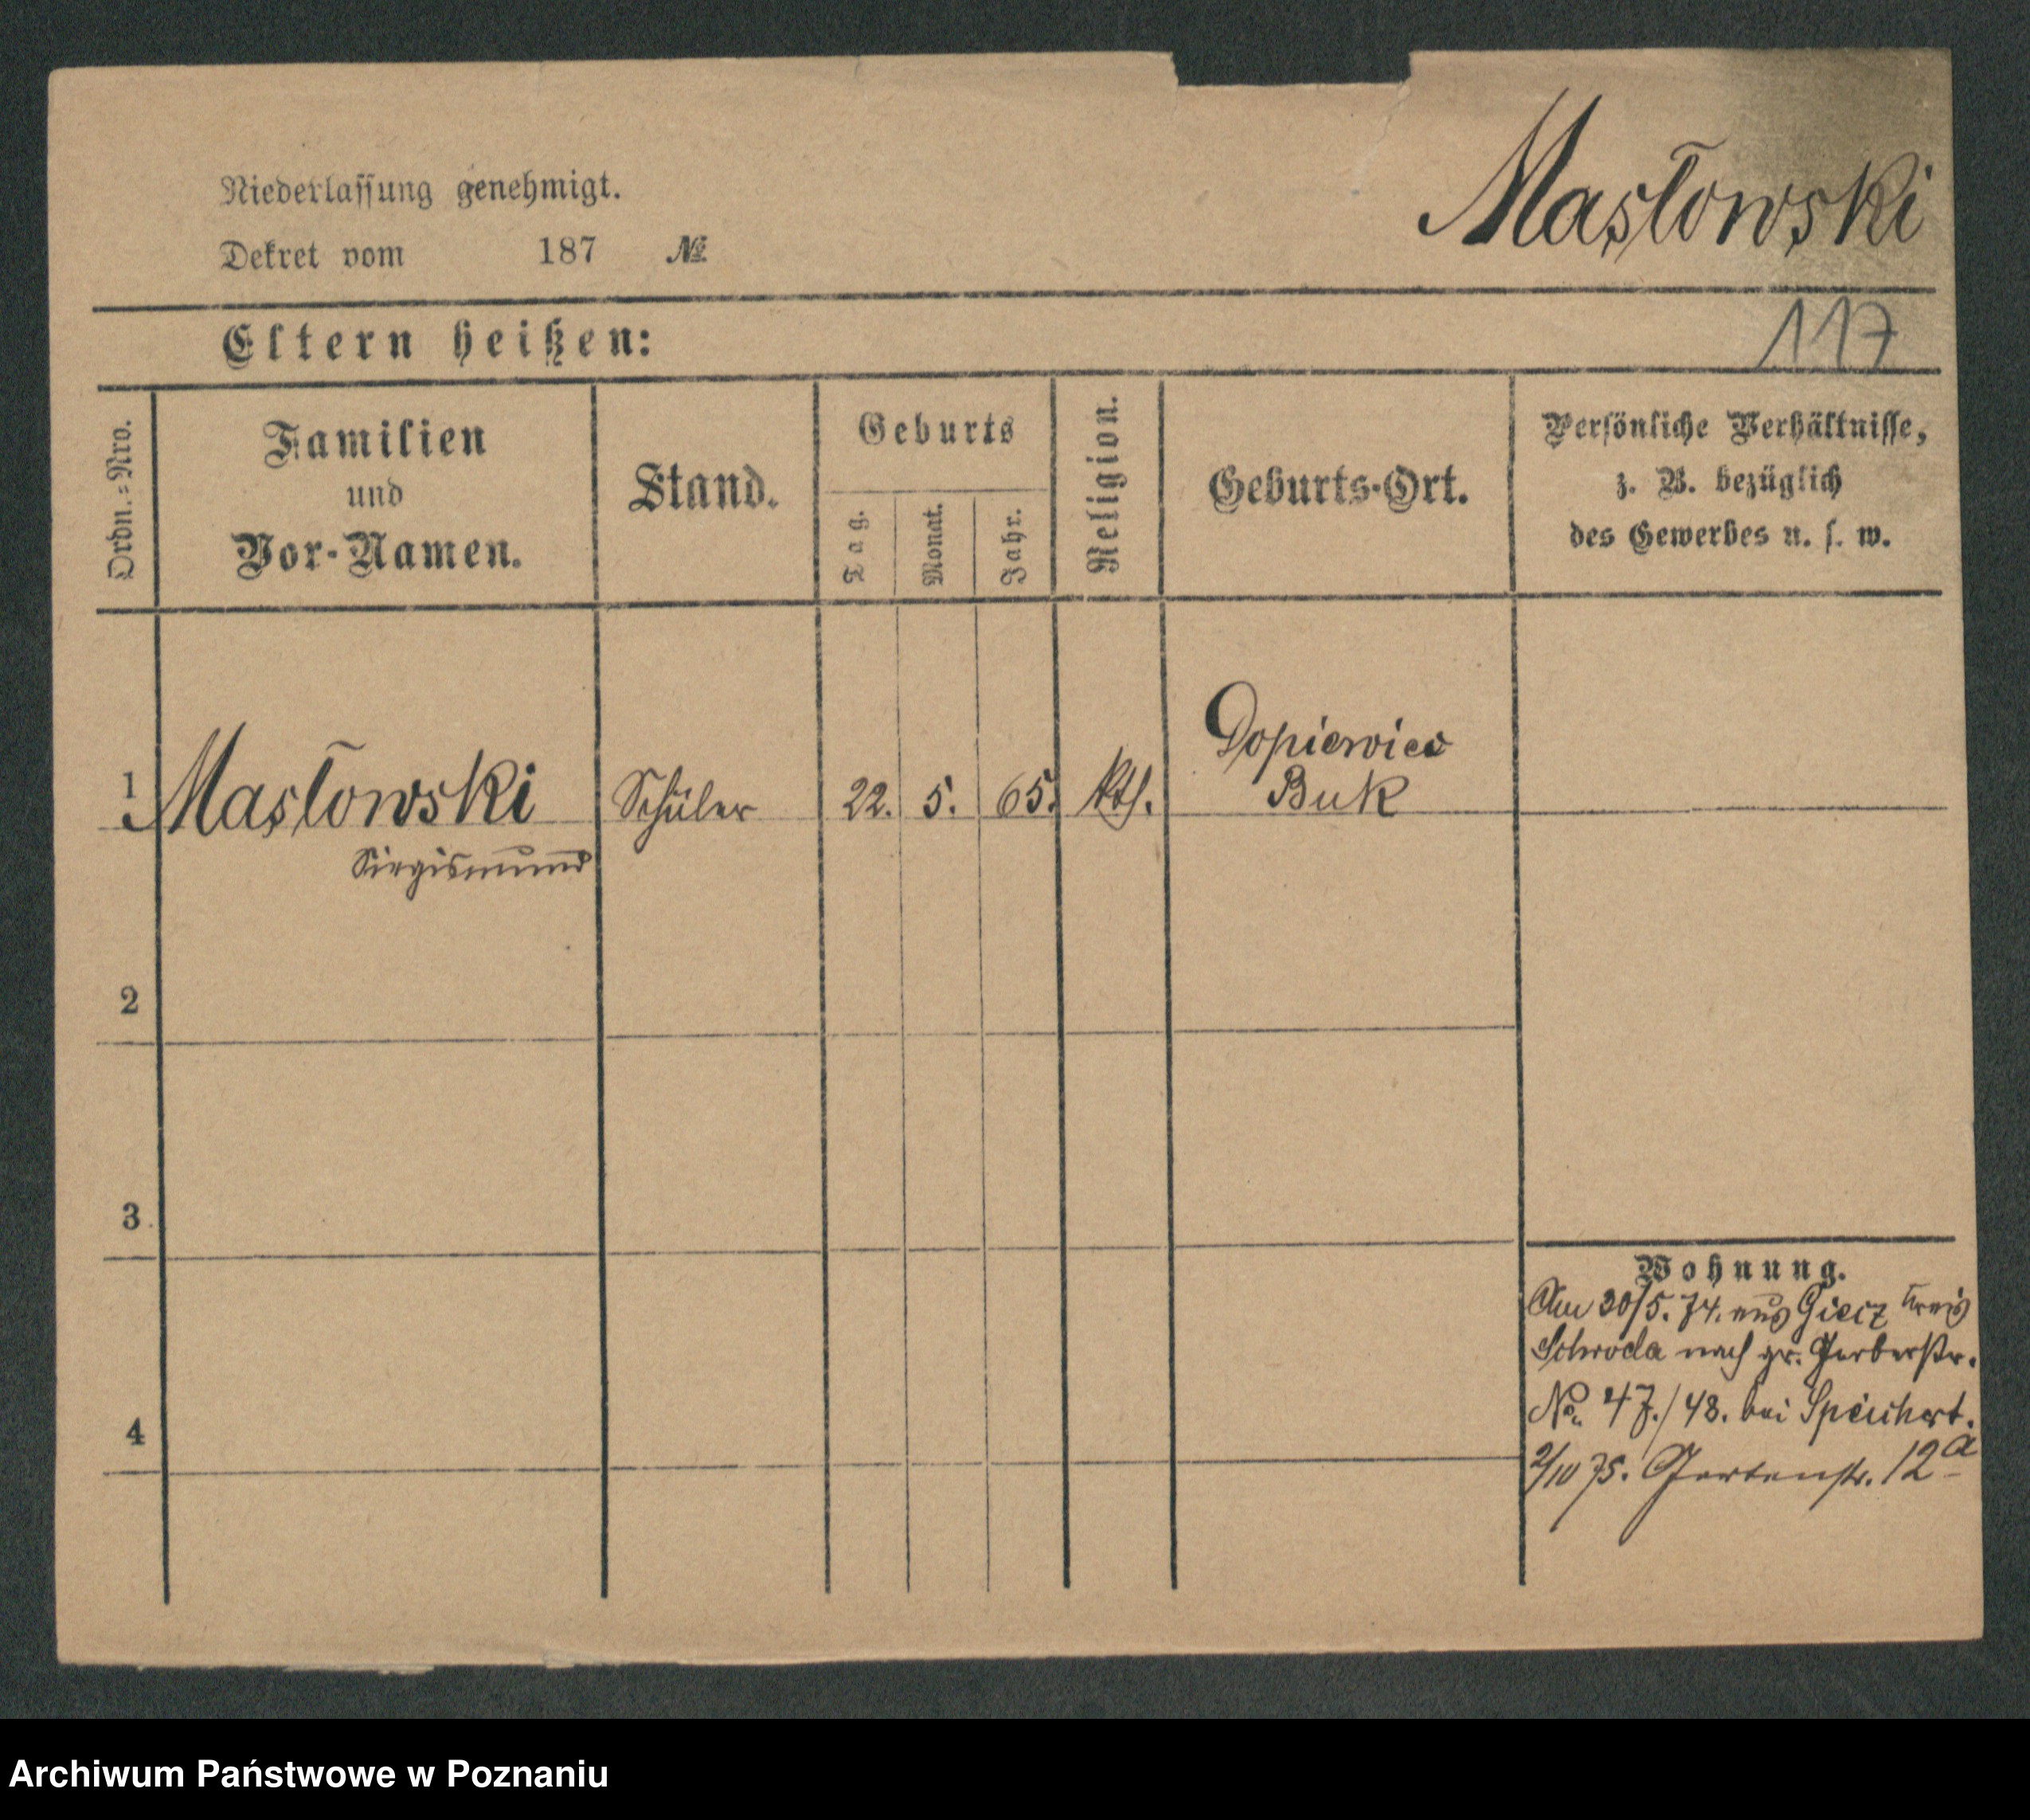 Niederlassung genehmigt.
Dekret vom 187 №
Masłowski
Eltern heißen:
117
Ordn.-Nro.
Familien
und
Vor-Namen.
Stand.
Geburts
Tag.
Monat.
Jahr.
Religion.
Geburts-Ort.
Persönliche Verhältnisse,
z. B. bezüglich
des Gewerbes u. s. w.
1 Masłowski Schüler 22. 5. 65. kth. Dopiewiec
Buk
Siegismund
2
3
4
Wohnung.
Am 30/5. 74. aus Giecz Kreis
Schroda nach gr. Gerberstr.
No. 47./48. bei Speichert.
2/10 75. Gartenstr. 12a
Archiwum Państwowe w Poznaniu